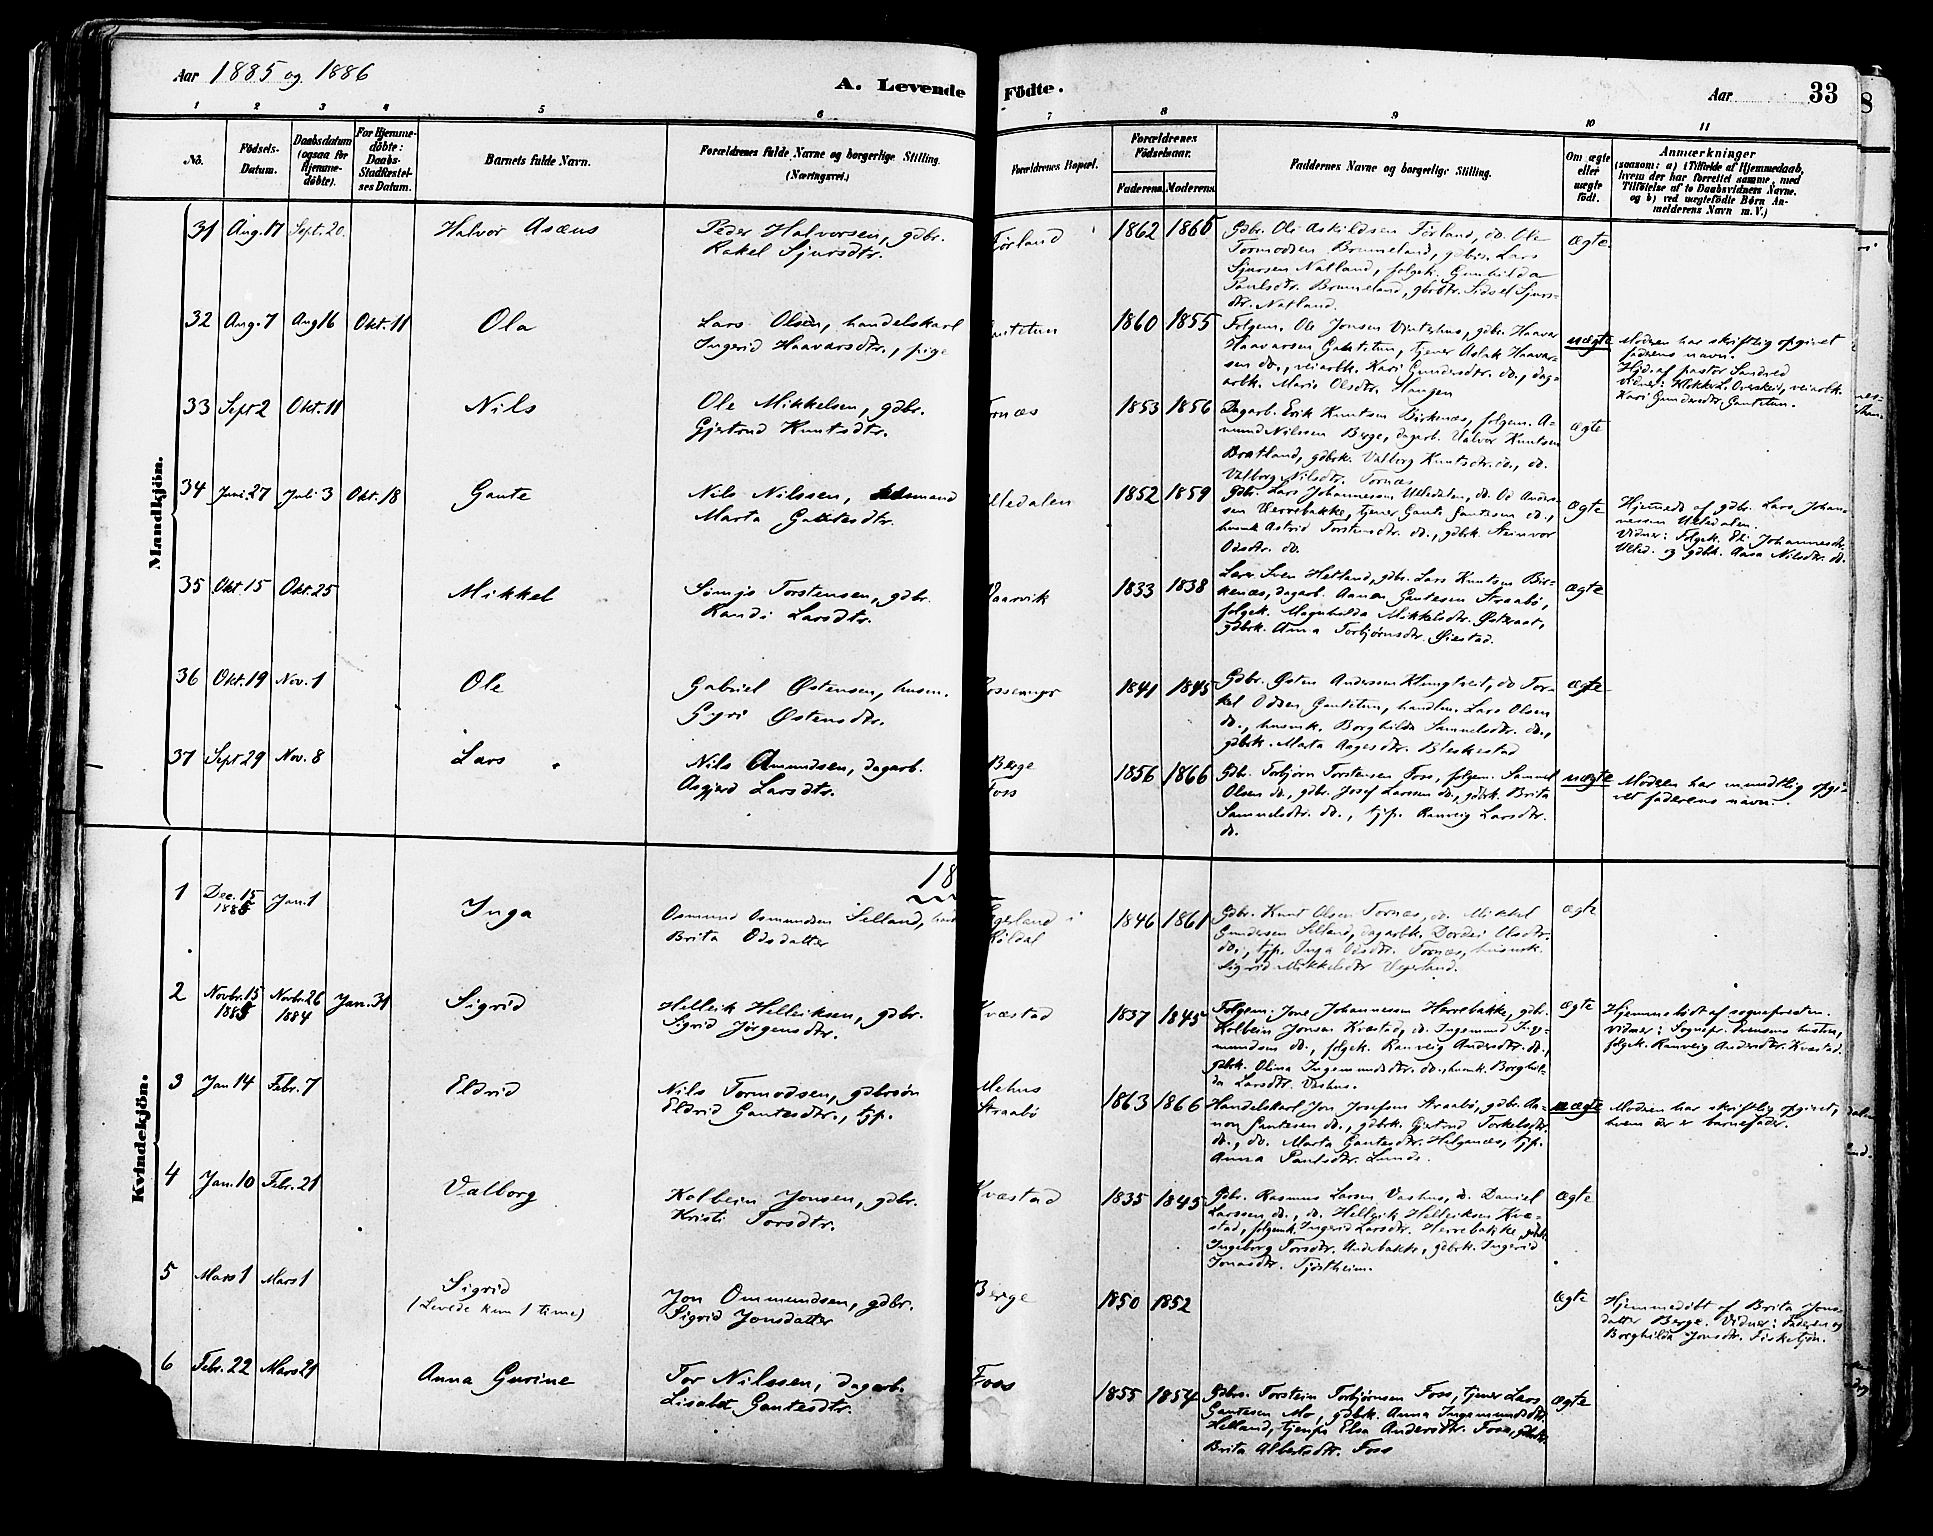 Aar 1885 og 1886
A. Levende Födte.
Aar
33
1 2 3 4 5 6 7 8 9 10 11
No.
Födsels-Datum.
Daabsdatum (ogsaa for Hjemme-döbte).
For Hjemme-döbte: Daabs-Stadfæstel-ses Datum.
Barnets fulde Navn.
Forældrenes fulde Navne og borgerlige Stilling. (Næringsvei.)
Forældrenes Bopæl.
Forældrenes Födselsaar.
Faderens. Moderens.
Faddernes Navne og borgerlige Stilling.
Om ægte eller uægte födt.
Anmærkninger
(saasom: a) i Tilfælde af Hjemmedaab,
hvem der har forrettet samme, med
Tilföielse af to Daabsvidners Navne.
og b) ved uægtefödte Børn An-
melderens Navn m. V.)
Mandkjön.
31 Aug. 17 Sept. 20. Halvor Asæus
Peder Halvorsen, gdbr.
Rakel Sjursdtr.
Førland 1862 1866
Gdbr. Ole Askildsen Førland, do. Ole
Tormodsen Brommeland, gdbr. Lars
Sjursen Natland, folgek. Gunhilda
Paulsdtr. Brommeland, gbrdtr. Sidsel Sjurs-
dtr. Natland.
ægte
32 Aug. 7 Aug 16 Okt. 11 Ola
Lars Olsen, handelskarl
Ingerid Haavarsdtr., pige
1860 1855
Folgem. Ole Jonsen Vinterhus, gdbr. Haavar
Haavarsen Gautetun, tjener Aslak Haavar-
sen do., veiarbk. Kari Gundersdtr. do., dag-
arbk. Marie Olsdtr. Haugen
uægte
Modren har skriftlig opgivet
fadrens navn.
Hjd. af pastor Sandved
Vidner: Klokker L. Overskeid, veiarbk.
Kari Gundersdtr. Gautetun.
33 Sept 2 Okt. 11 Nils
Ole Mikkelsen, gdbr.
Gjertrud Knutsdtr.
Tornæs 1853 1856
Dagarb. Erik Knutsen Birkenæs, folgem. A-
mund Nilssen Berge, dagarb. Halvor Knutsen
Bratland, gdbrk. Valborg Knutsdtr. do., do.
Valborg Nilsdtr. Tornæs
ægte
34 Juni 27 Juli 3 Okt. 18 Gaute
Nils Nilssen,
Marta Gautesdtr.
1852 1859
Gdbr. Lars Johannessen Ulledalen, do. Od Anders-
sen Herrebakke, tjener Gaute Gautesen do.,
husmk Astrid Torstensdtr. do., gdbrk. Steinvor
Odsdtr. do.
ægte
Hjemmed. af gdbr. Lars Johan-
nessen Ulledalen.
Vidner: Folgek. Eli Johannesdtr.
Ulled. og gdbk. Aasa Nilsdtr. do.
35 Okt. 15 Okt. 25 Mikkel
Torstensen, gdbr.
Randi Larsdtr.
Vaarvik 1833 1838
Lærer Sven Hetland, gdbr. Lars Knutsen Bir-
kenæs, dagarb. Aanon Gautesen Straabö,
folgek. Magnhilda Mikkelsdtr. Østraat,
gdbrk. Anna Torbjørnsdtr. Øiestad.
ægte
36 Okt. 19 Nov. 1 Ole
Gabriel Østensen, husm.
Gyri Østensdtr.
1841 1845
Gdbr. Østen Andersen Klungtveit, do Tor-
kel Odsen Gautetun, handlm. Lars Olsen
do., husmk. Borghilda Samuelsdtr. do.,
gdbrk. Marta Aagesdtr. Bleskestad
ægte
37 Sept 29 Nov. 8 Lars
Nils Amundsen, dagarb.
Asgjerd Larsdtr.
Berge
Foss
1856 1866
Gdbr. Torbjørn Torstensen Foss, folgem. Samuel
Olsen do., gdbr. Josef Larssen do., gdbrk. Brita
Samuelsdtr. do., tjp. Ranveig Larsdtr.
do.
uægte
Modren har mundtlig opgi-
vet faderens navn.
Kvindekjön.
18
1 Dec. 15 1885 Jan. 1 Inga
Osmund Osmundsen Selland,
Brita Odsdatter
i
Röldal
1846 1861
Gdbr. Knut Olsen Tornæs, do. Mikkel
Gundersen Selland, dagarbk. Dordei Olsdtr.
do., tjp. Inga Odsdtr. Tornæs, husmk.
Sigrid Mikkelsdtr Vegerland.
ægte
2 Novbr. 15 1885 Novbr. 26 1884 Jan. 31 Sigrid
Helleik Helleiksen, gdbr.
Sigrid Jörgensdtr.
Kvæstad 1837 1845
Folgem. Jone Johannessen Herrebakke, gdbr.
Kolbein Jonsen Kvæstad, do. Ingemund Ing-
mundsen do., folgek. Ranveig Andersdtr. do.,
gdbrk. Olina Ingemundsdtr. do., husmk. Borghil-
da Larsdtr. Vashus.
ægte
Hjemmedöbt af sognepresten.
Vidner: Sognepr. Evensens hustru,
folgek. Ranveig Andersdtr. Kvæstad.
3 Jan 14 Febr. 7 Eldrid
Nils Tormodsen, gdbrsön
Eldrid Gautesdtr., tjp.
Mehus
Straabö
1863 1866
Handelskarl Jon Josefsen Straabö, gdbr. Aa-
non Gautesen do., gdbrk. Gjertrud Torkelsdtr.
do., do. Marta Gautesdtr. Helgenæs, tjp.
Anna Paulsdtr. Lunde.
uægte
Modren har skriftlig opgivet,
hvem der er barnefader.
4 Jan. 10 Febr. 21 Valborg
Kolbein Jonsen, gdbr.
Kristi Torsdtr.
Kvæstad 1835 1845
Gdbr. Rasmus Larsen Vashus, do. Daniel
Larssen do., do. Helleik Helleiksen Kvæ-
stad, folgemk. Ingerid Larsdtr. Herrebakke, gdbk.
Ingeborg Torsdtr. Andebakke, gdbrk. Ingerid
Jonasdtr. Tjöstheim.
ægte
5 Mars 1 Mars 1 Sigrid
(Levede kun 1 time)
Jon Ommundsen, gdbr.
Sigrid Jonsdatter
Berge 1850 1852
ægte
Hjemmedöbt af Brita Jons-
datter Berge. Vidner: Faderen og
Borghilda Jonsdtr. Fisketjön.
6 Febr. 22 Mars 21 Anna Gurine
Tor Nilssen, dagarb.
Lisabet Gautesdtr.
Foss 1855 1854
Gdbrs. Torstein Torbjørnsen Foss, tjener Lars
Gautesen Mo, gdbrk. Anna Ingemundsdtr.
Helland, tjenp. Elsa Andersdtr. Foss, gdbrk.
Brita Albertsdtr. Foss
ægte